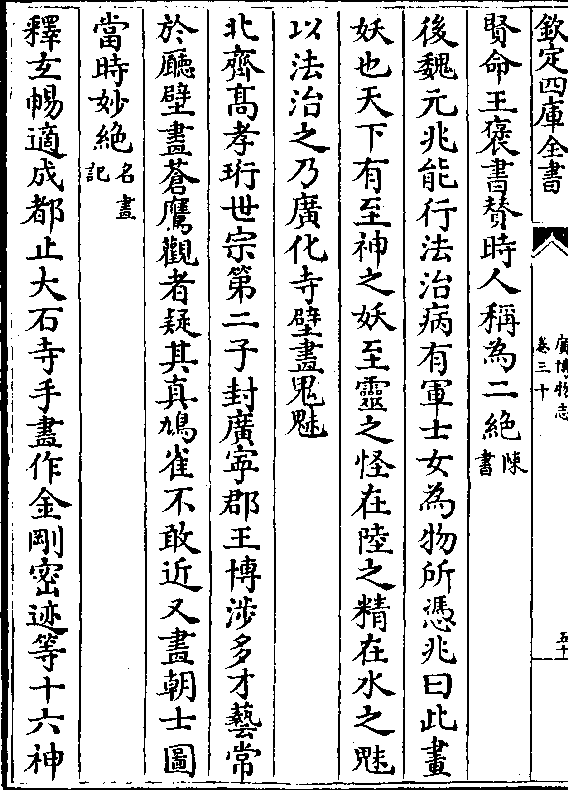 欽定四庫全書
廣博物志
卷三十
五十
賢命王褒書贊時人稱為二絶陳書
後魏元兆能行法治病有軍士女為物所憑兆曰此畫
妖也天下有至神之妖至靈之怪在陸之精在水之魅
以法治之乃廣化寺壁畫鬼魅
北齊髙孝珩世宗第二子封廣寧郡王博涉多才藝常
於廳壁畫蒼鷹觀者疑其真鳩雀不敢近又畫朝士圖
當時妙絶名畫記
釋玄暢適成都止大石寺手畫作金剛密迹等十六神